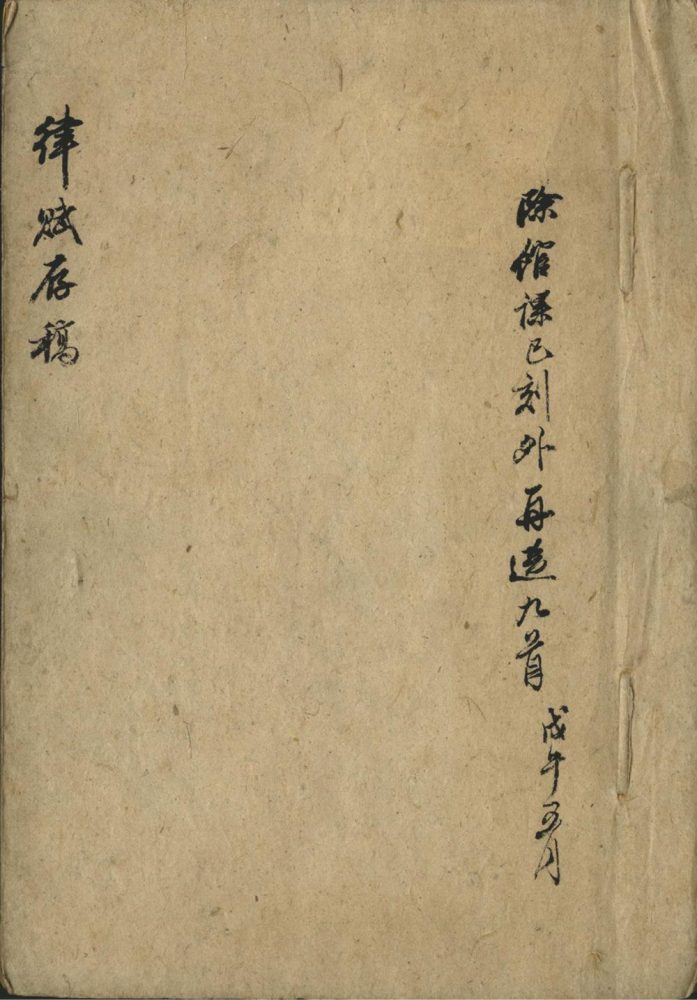 除館課已刻外再選九首 戊午五月
律賦存稿